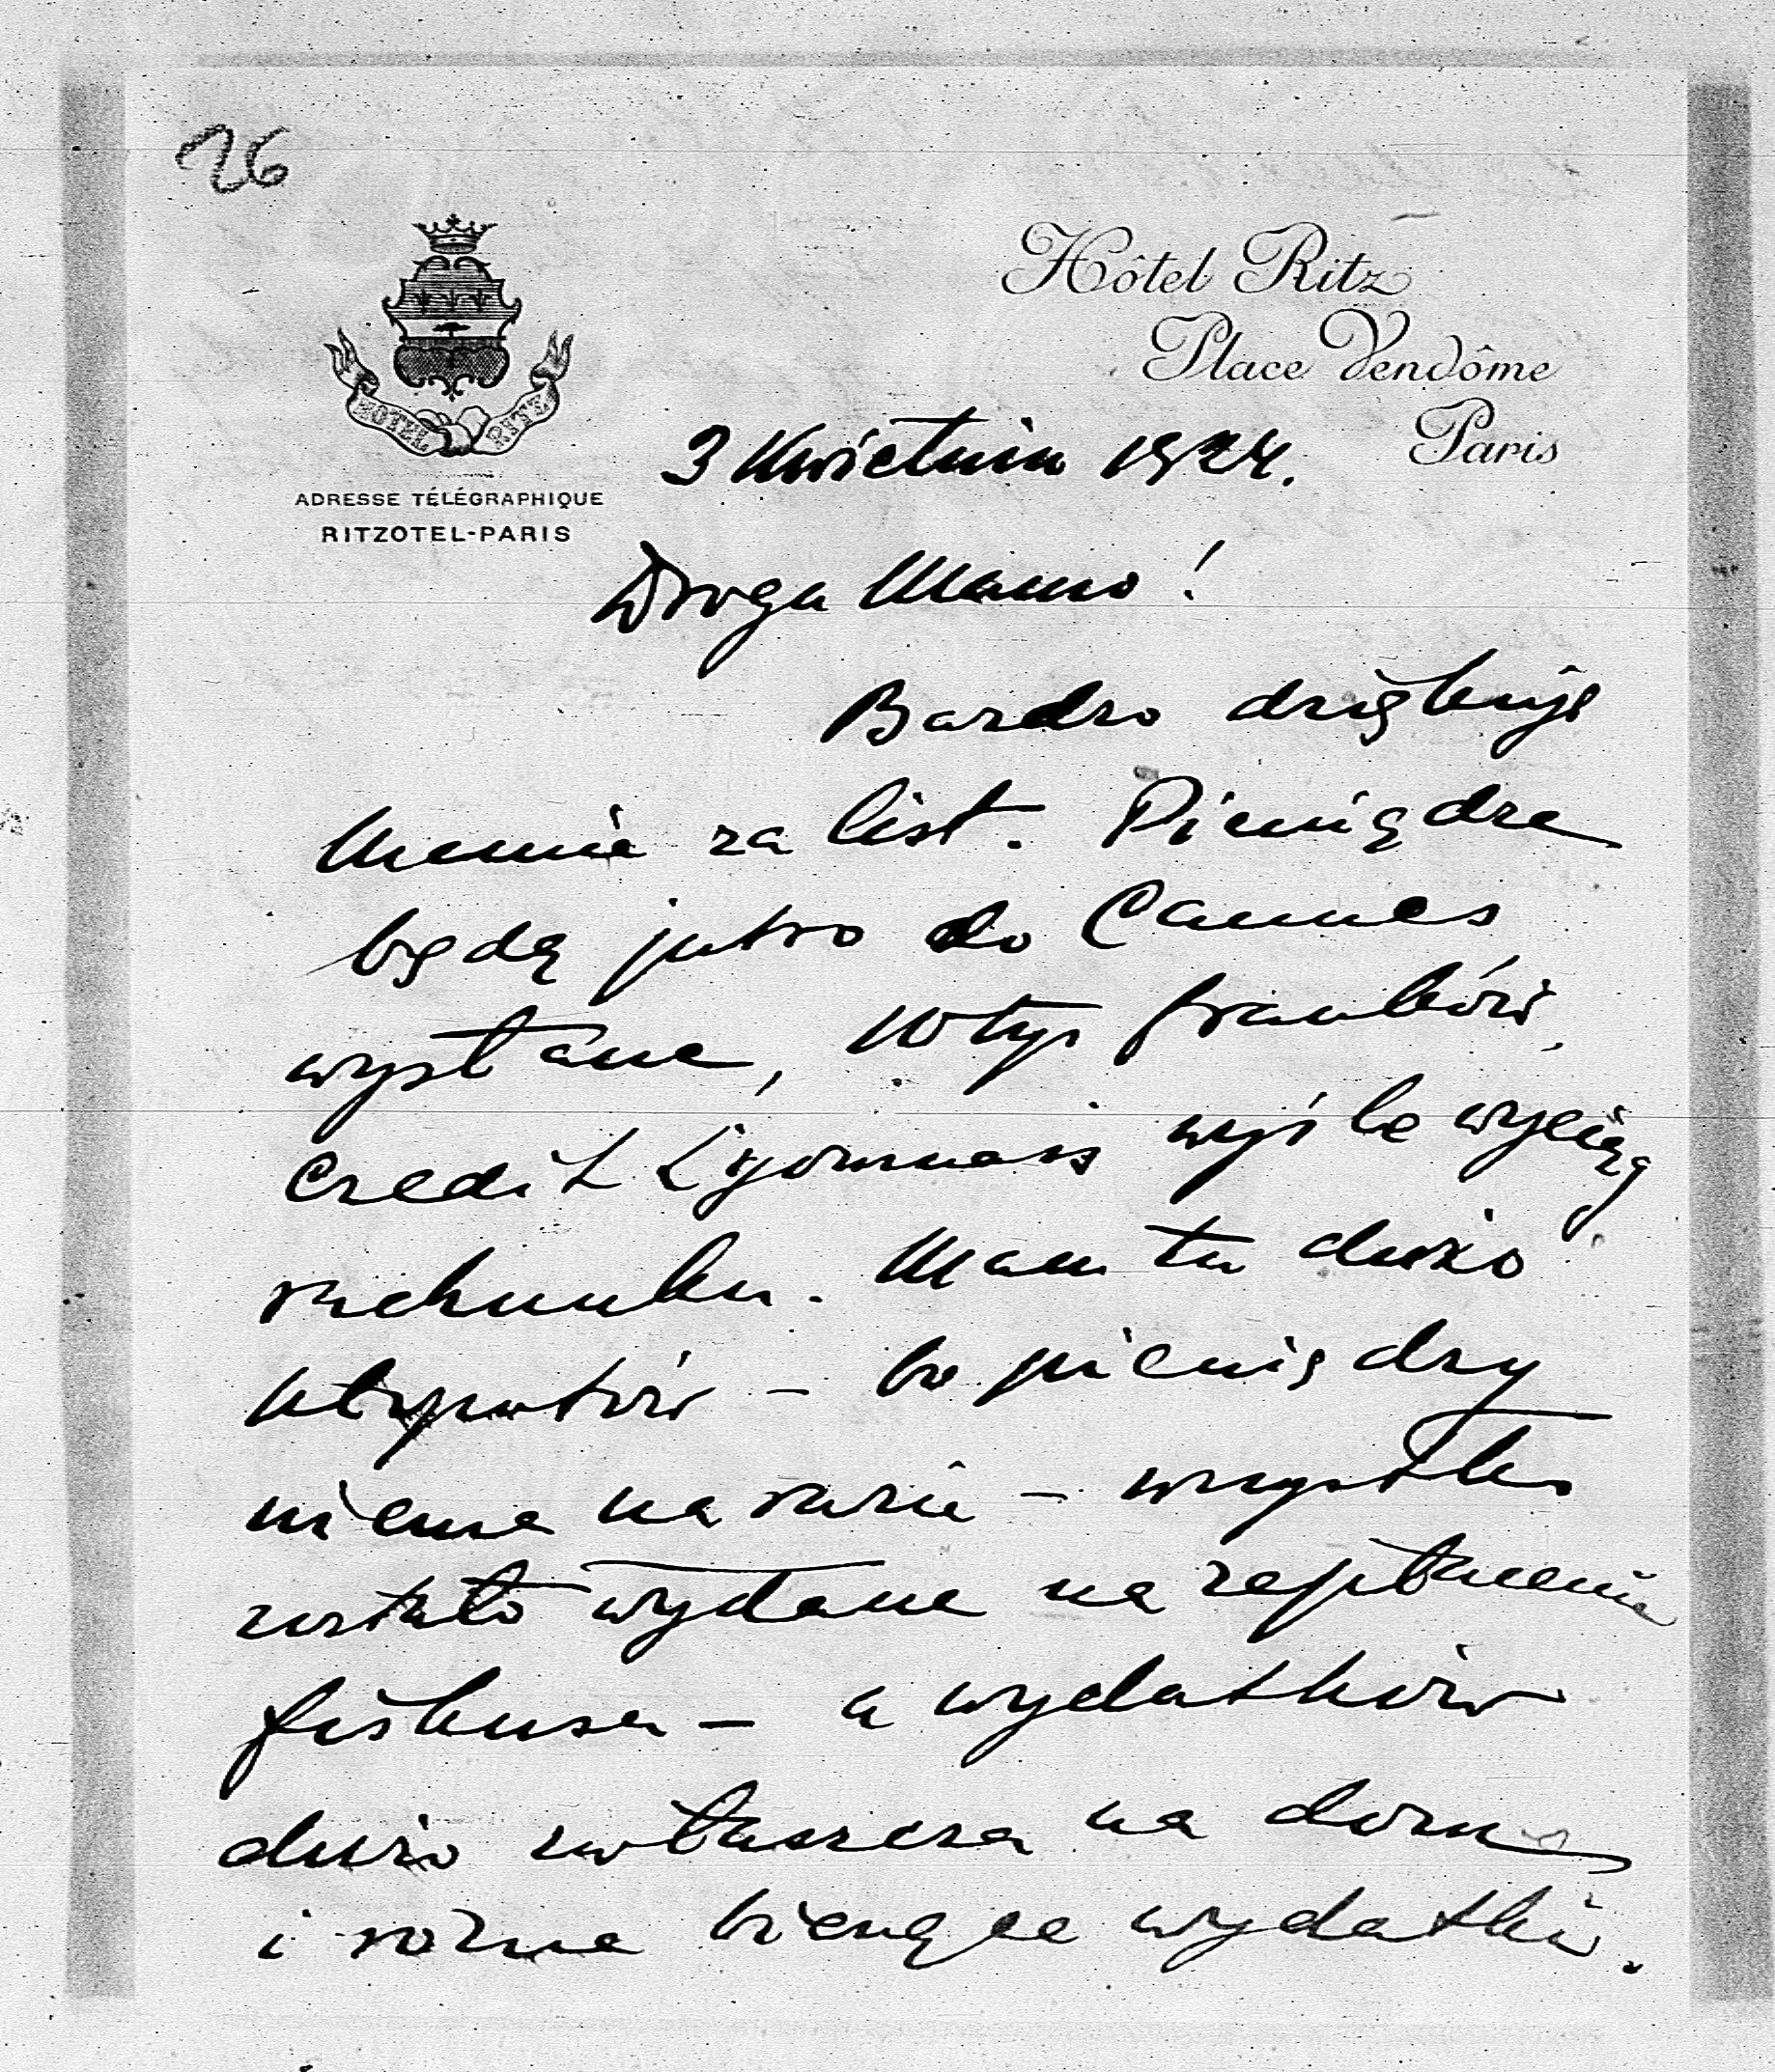 26
Hôtel Ritz
Place Vendôme
Paris
HOTEL RITZ
ADRESSE TÉLÉGRAPHIQUE
RITZOTEL-PARIS
3 Kwietnia 1924.
Droga Mamo!
Bardzo dziękuję
Mamie za list. Pieniądze
będą jutro do Cannes
wysłane, 10 tys franków,
Credit Lyonnais wyśle wyciąg
rachunku. Mam tu dużo
kłopotów – bo pieniędzy
niema na razie – wszystko
zostało wydane na zapłacenie
fiskusa – a wydatków
dużo zwłaszcza na domy
i różne bieżące wydatki.